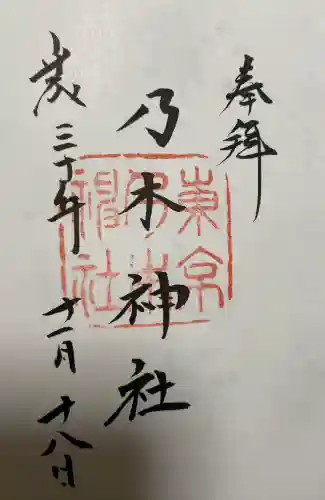 奉拝
乃木神社
東京
乃木
神社
成三十年 十一月 十八日